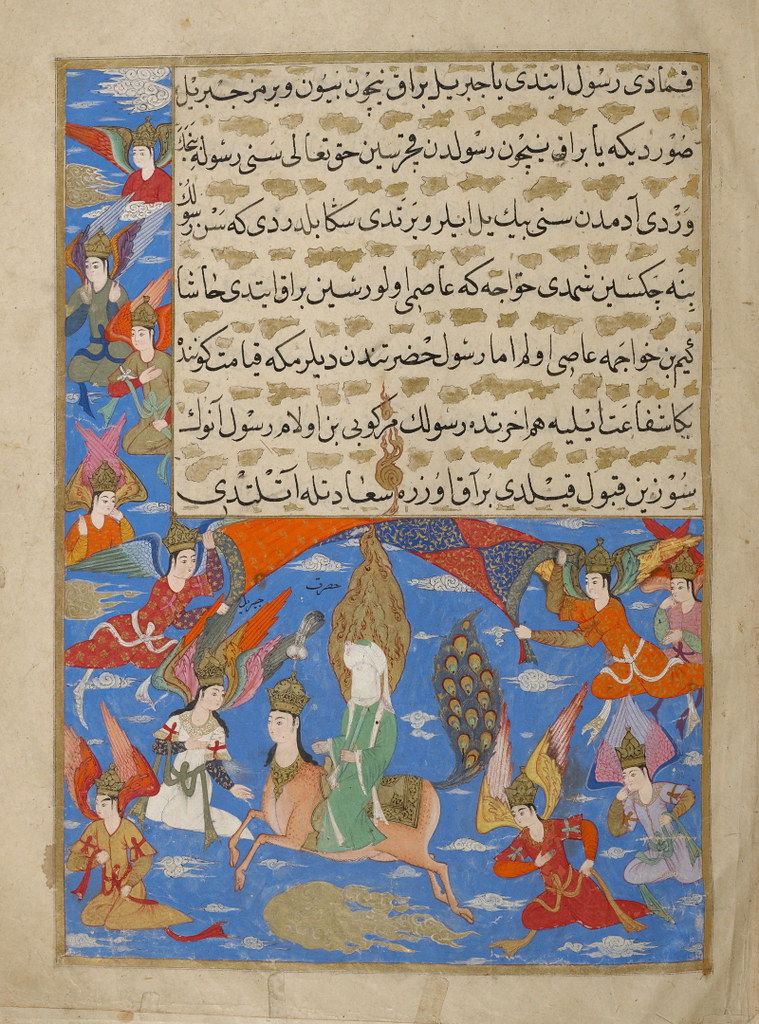 قمادی رسول ایندی یا جبریل براق نیچون بیون ویرمز جبریل
صوردیکه یا براق نیچون رسولدن قچرسین حق تعالی سنی رسوله
وردی آدمدن سنی بیك ییل ایلرو یرتدی سکا بلدردی که سن رسول
ینه چکسین شمدی خواجه که عاصمی اولورسین براق ایتدی حاشا
کیم بن خواجمه عاصی اولم اما رسول حضرتندن دیلرمکه قیامت کوننده
بکا شفاعت ایلیه هم اخرتده رسولك مرکوبی بن اولام رسول آنوك
سوزین قبول قیلدی براق اوزره سعادتله آتلندی
حضرت
جبریل